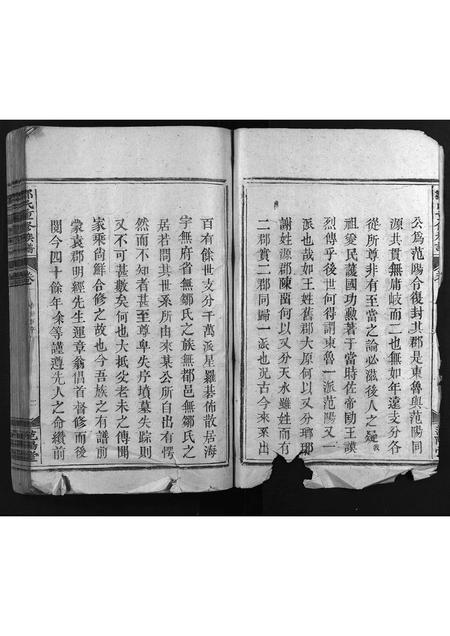 公爲范陽令復封其郡是東魯與范陽同
源共貫無庸岐而二也無如年遠支分各
從所尊非有至當之論必滋後人之疑我
祖愛民護國功勳著于當時佐帝勛王謨
烈傳乎後世何得謂東魯一派范陽又一
派也哉如王姓舊郡太原何以又分瑯琊
謝姓源郡陳畱何以又分天水雖姓而有
二郡實二郡同歸一派也况古今來系出
百有餘世支分千萬派星羅碁佈散居海
宇無府省無鄒氏之族無都邑無鄒氏之
居若問其世系所由來某公所自出有愕
然而不知者甚至尊卑失序墳墓失踪則
又不可甚數矣何也大抵父老未之傳聞
家乘尙鮮合修之故也今吾族之有譜前
蒙袁郡明經先生運章翁倡首督修而後
閱今四十餘年余等謹遵先人之命纘前
鄒氏重修族譜
卷
范陽堂